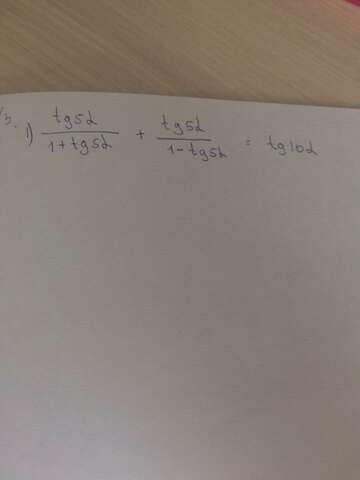 1) tg5α / 1 + tg5α + tg5α / 1 - tg5α = tg10α